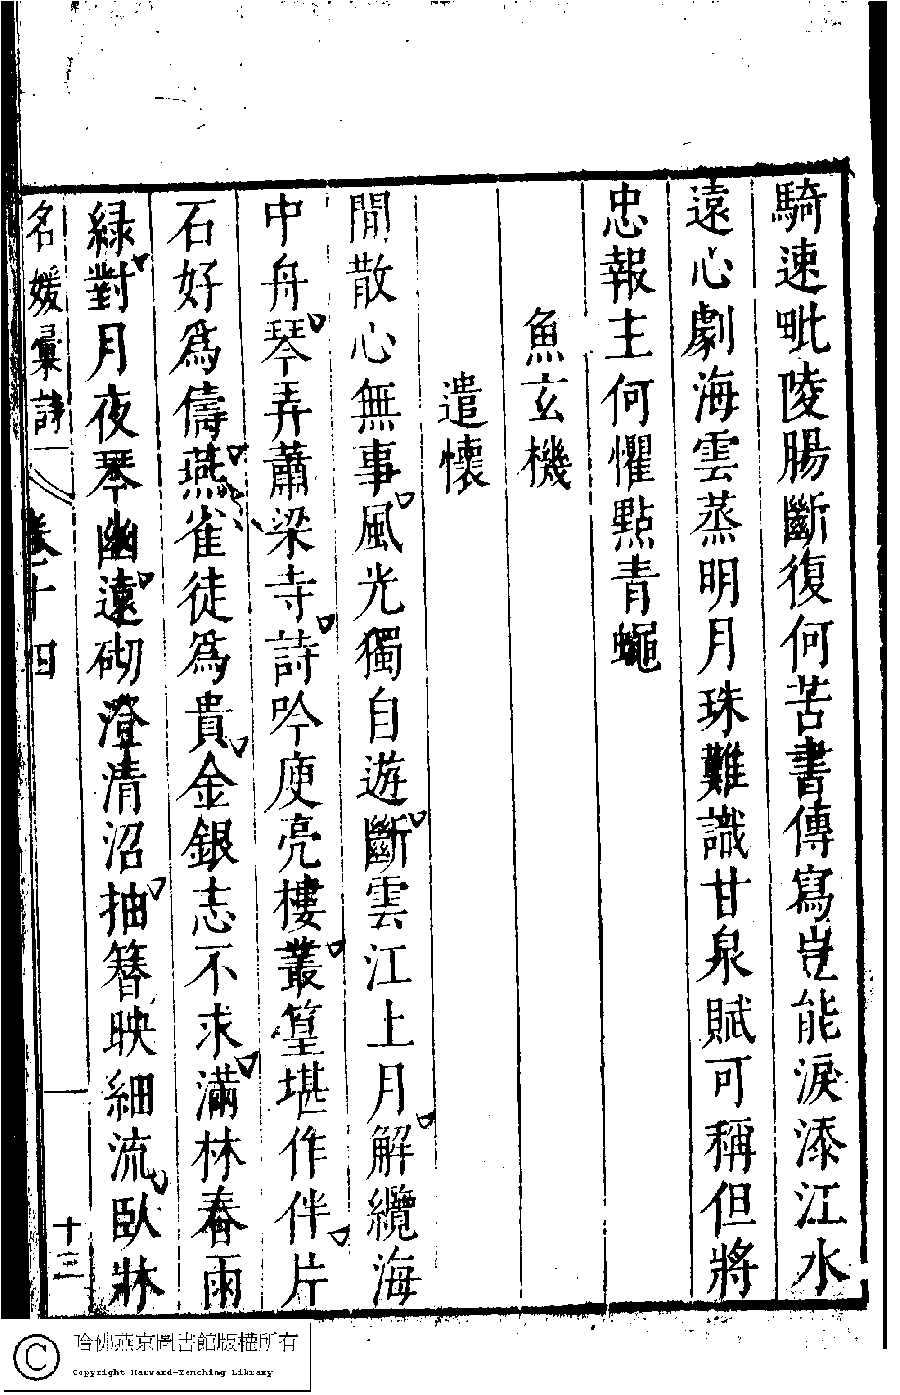 騎速毗陵腸斷復何苦書傳寫豈能淚添江水
遠心劇海雲蒸明月珠難識甘泉賦可稱但將
忠報主何懼點青蠅
魚玄機
遣懷
閒散心無事風光獨自遊斷雲江上月解纜海
中舟琴弄蕭梁寺詩吟庾亮樓叢篁堪作伴片
石好為儔燕雀徒為貴金銀志不求滿林春雨
緑對月夜琴幽遶砌澄清沼抽簪映細流臥牀
名媛彙詩 卷十四 十三
哈佛燕京圖書館版權所有
Copyright Harvard-Yenching Library